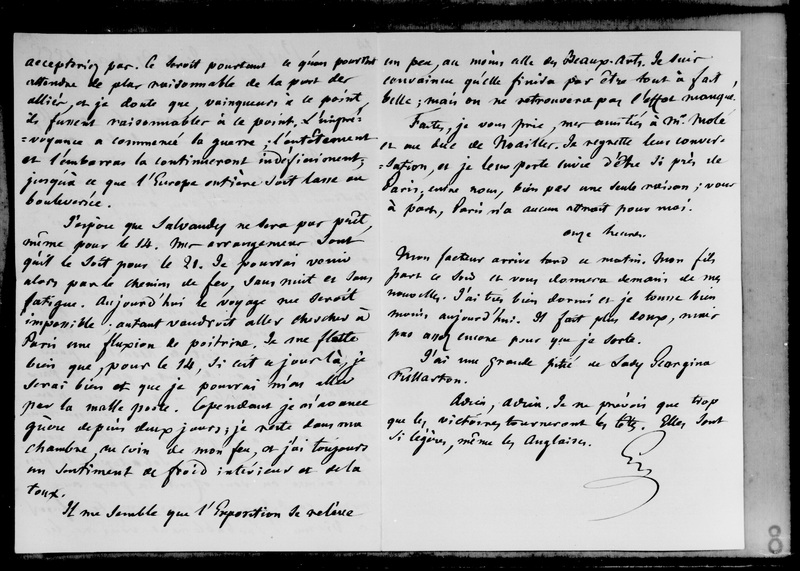 accepteriez pas. Ce seroit pourtant ce qu'on pourroit
attendre de plus raisonnable de la part des
alliés, et je doute que, vainqueurs à ce point,
ils fussent raisonnables à ce point. L'impré-
=voyance a commencé la guerre ; l'entêtement
et l'embarras la continueront indéfiniment,
jusqu'à ce que l'Europe entière soit lasse ou
bouleversée.
J'espère que Salvandy ne sera pas prêt,
même pour le 14. Mes arrangemens sont
qu'il le soit pour le 21. Je pourrai venir
alors par le chemin de fer, sans nuit et sans
fatigue. Aujourd'hui le voyage me seroit
impossible ; autant vaudroit aller chercher à
Paris une fluxion de poitrine. Je me flatte
bien que, pour le 14, si c'est à ce jour là, je
serai bien et que je pourrai m'en aller
par la malle poste. Cependant je n'avance
guère depuis deux jours ; je reste dans ma
chambre, au coin de mon feu, et j'ai toujours
un sentiment de froid intérieur et de la
toux.
Il me semble que l'Exposition se relève
un peu, au moins celle des Beaux-Arts. Je suis
convaincu qu'elle finira par être tout à fait
belle ; mais on ne retrouvera pas l'effet manqué.
Faites, je vous prie, mes amitiés à Mr. Molé
et au duc de Noailles. Je regrette leur conver-
=sation, et je leur porte envie d'être si près de
Paris ; entre nous, bien par une seule raison ; vous
à part, Paris n'a aucun attrait pour moi.
onze heures.
Mon facteur arrive tard ce matin. Mon fils
part ce soir et vous donnera demain de mes
nouvelles. J'ai très bien dormi et je tousse bien
moins aujourd'hui. Il fait plus doux, mais
pas assez encore pour que je sorte.
J'ai une grande pitié de Lady Georgina
Fullarton.
Adieu, Adieu. Je ne prévois que trop
que les victoires tourneront les têtes. Elles sont
si légères, même les Anglaises.
G
8